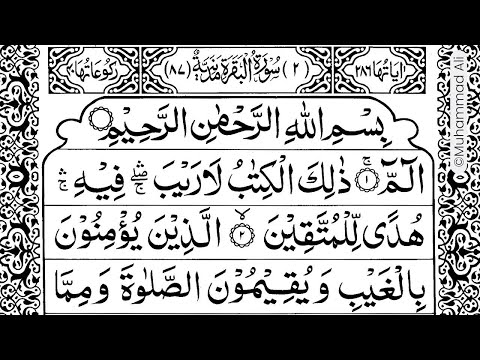 اٰیَاتُهَا ۲۸۶ (۲) سُوْرَةُ الْبَقَرَةِ مَدَنِیَّةٌ (۸۷) رُكُوْعَاتُهَا ۴۰
بِسْمِ اللهِ الرَّحْمٰنِ الرَّحِیْمِ
الٓمّٓ ۚ ﴿۱﴾ ذٰلِكَ الْكِتٰبُ لَا رَیْبَ ۛۖ فِیْهِ ۛۚ
هُدًی لِّلْمُتَّقِیْنَ ﴿۲﴾ۙ الَّذِیْنَ یُؤْمِنُوْنَ
بِالْغَیْبِ وَ یُقِیْمُوْنَ الصَّلٰوةَ وَ مِمَّا
©Muhammad Ali